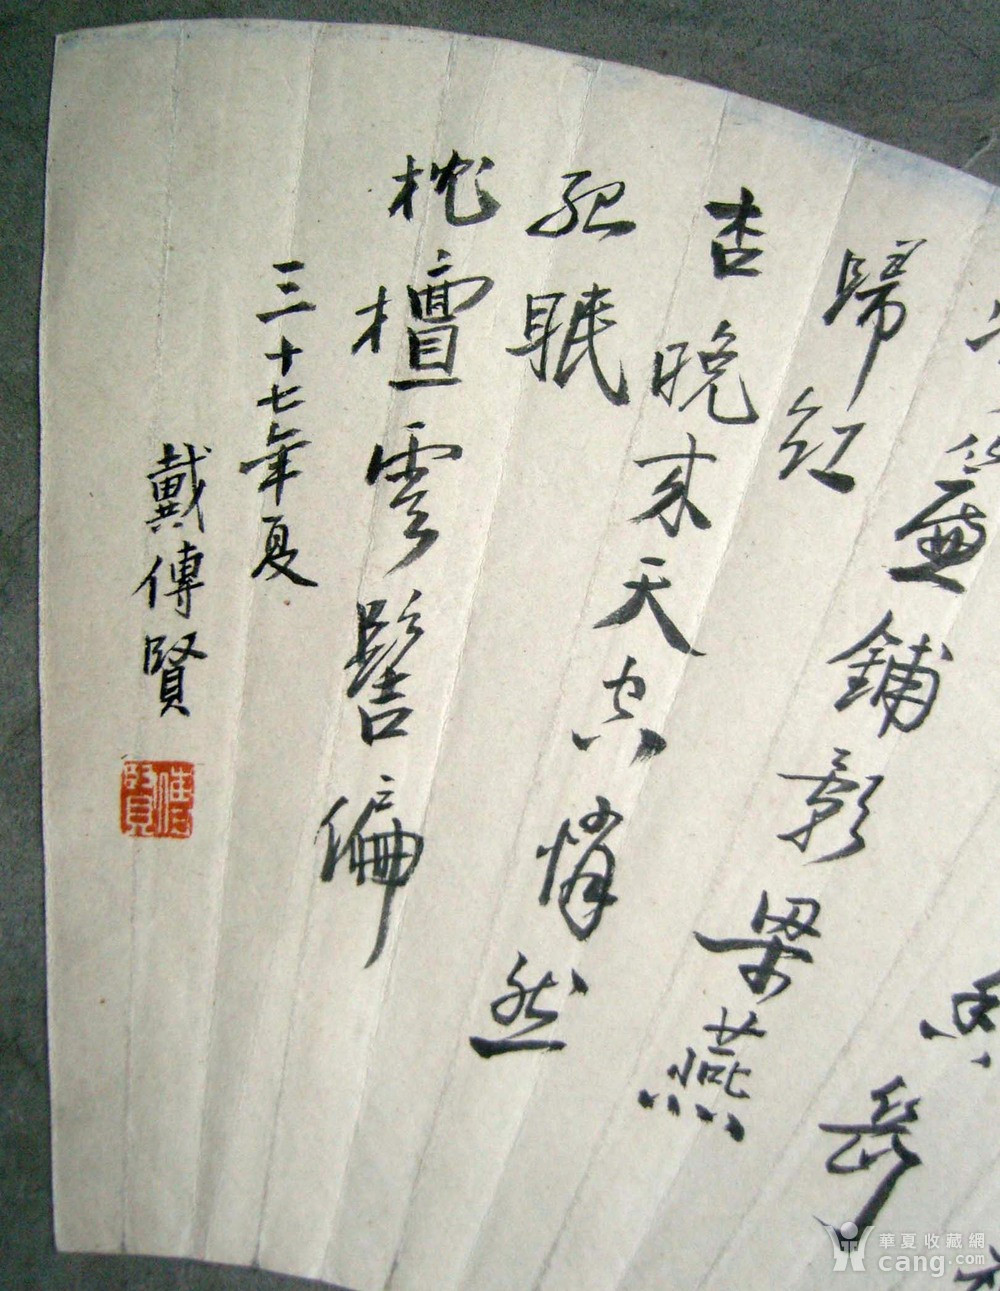 簾鋪影梁燕
歸紅
杏晚來天空悄然
孤眠
枕檀雲髻偏
三十七年夏
戴傳賢
傳賢
華夏收藏網
cang.com